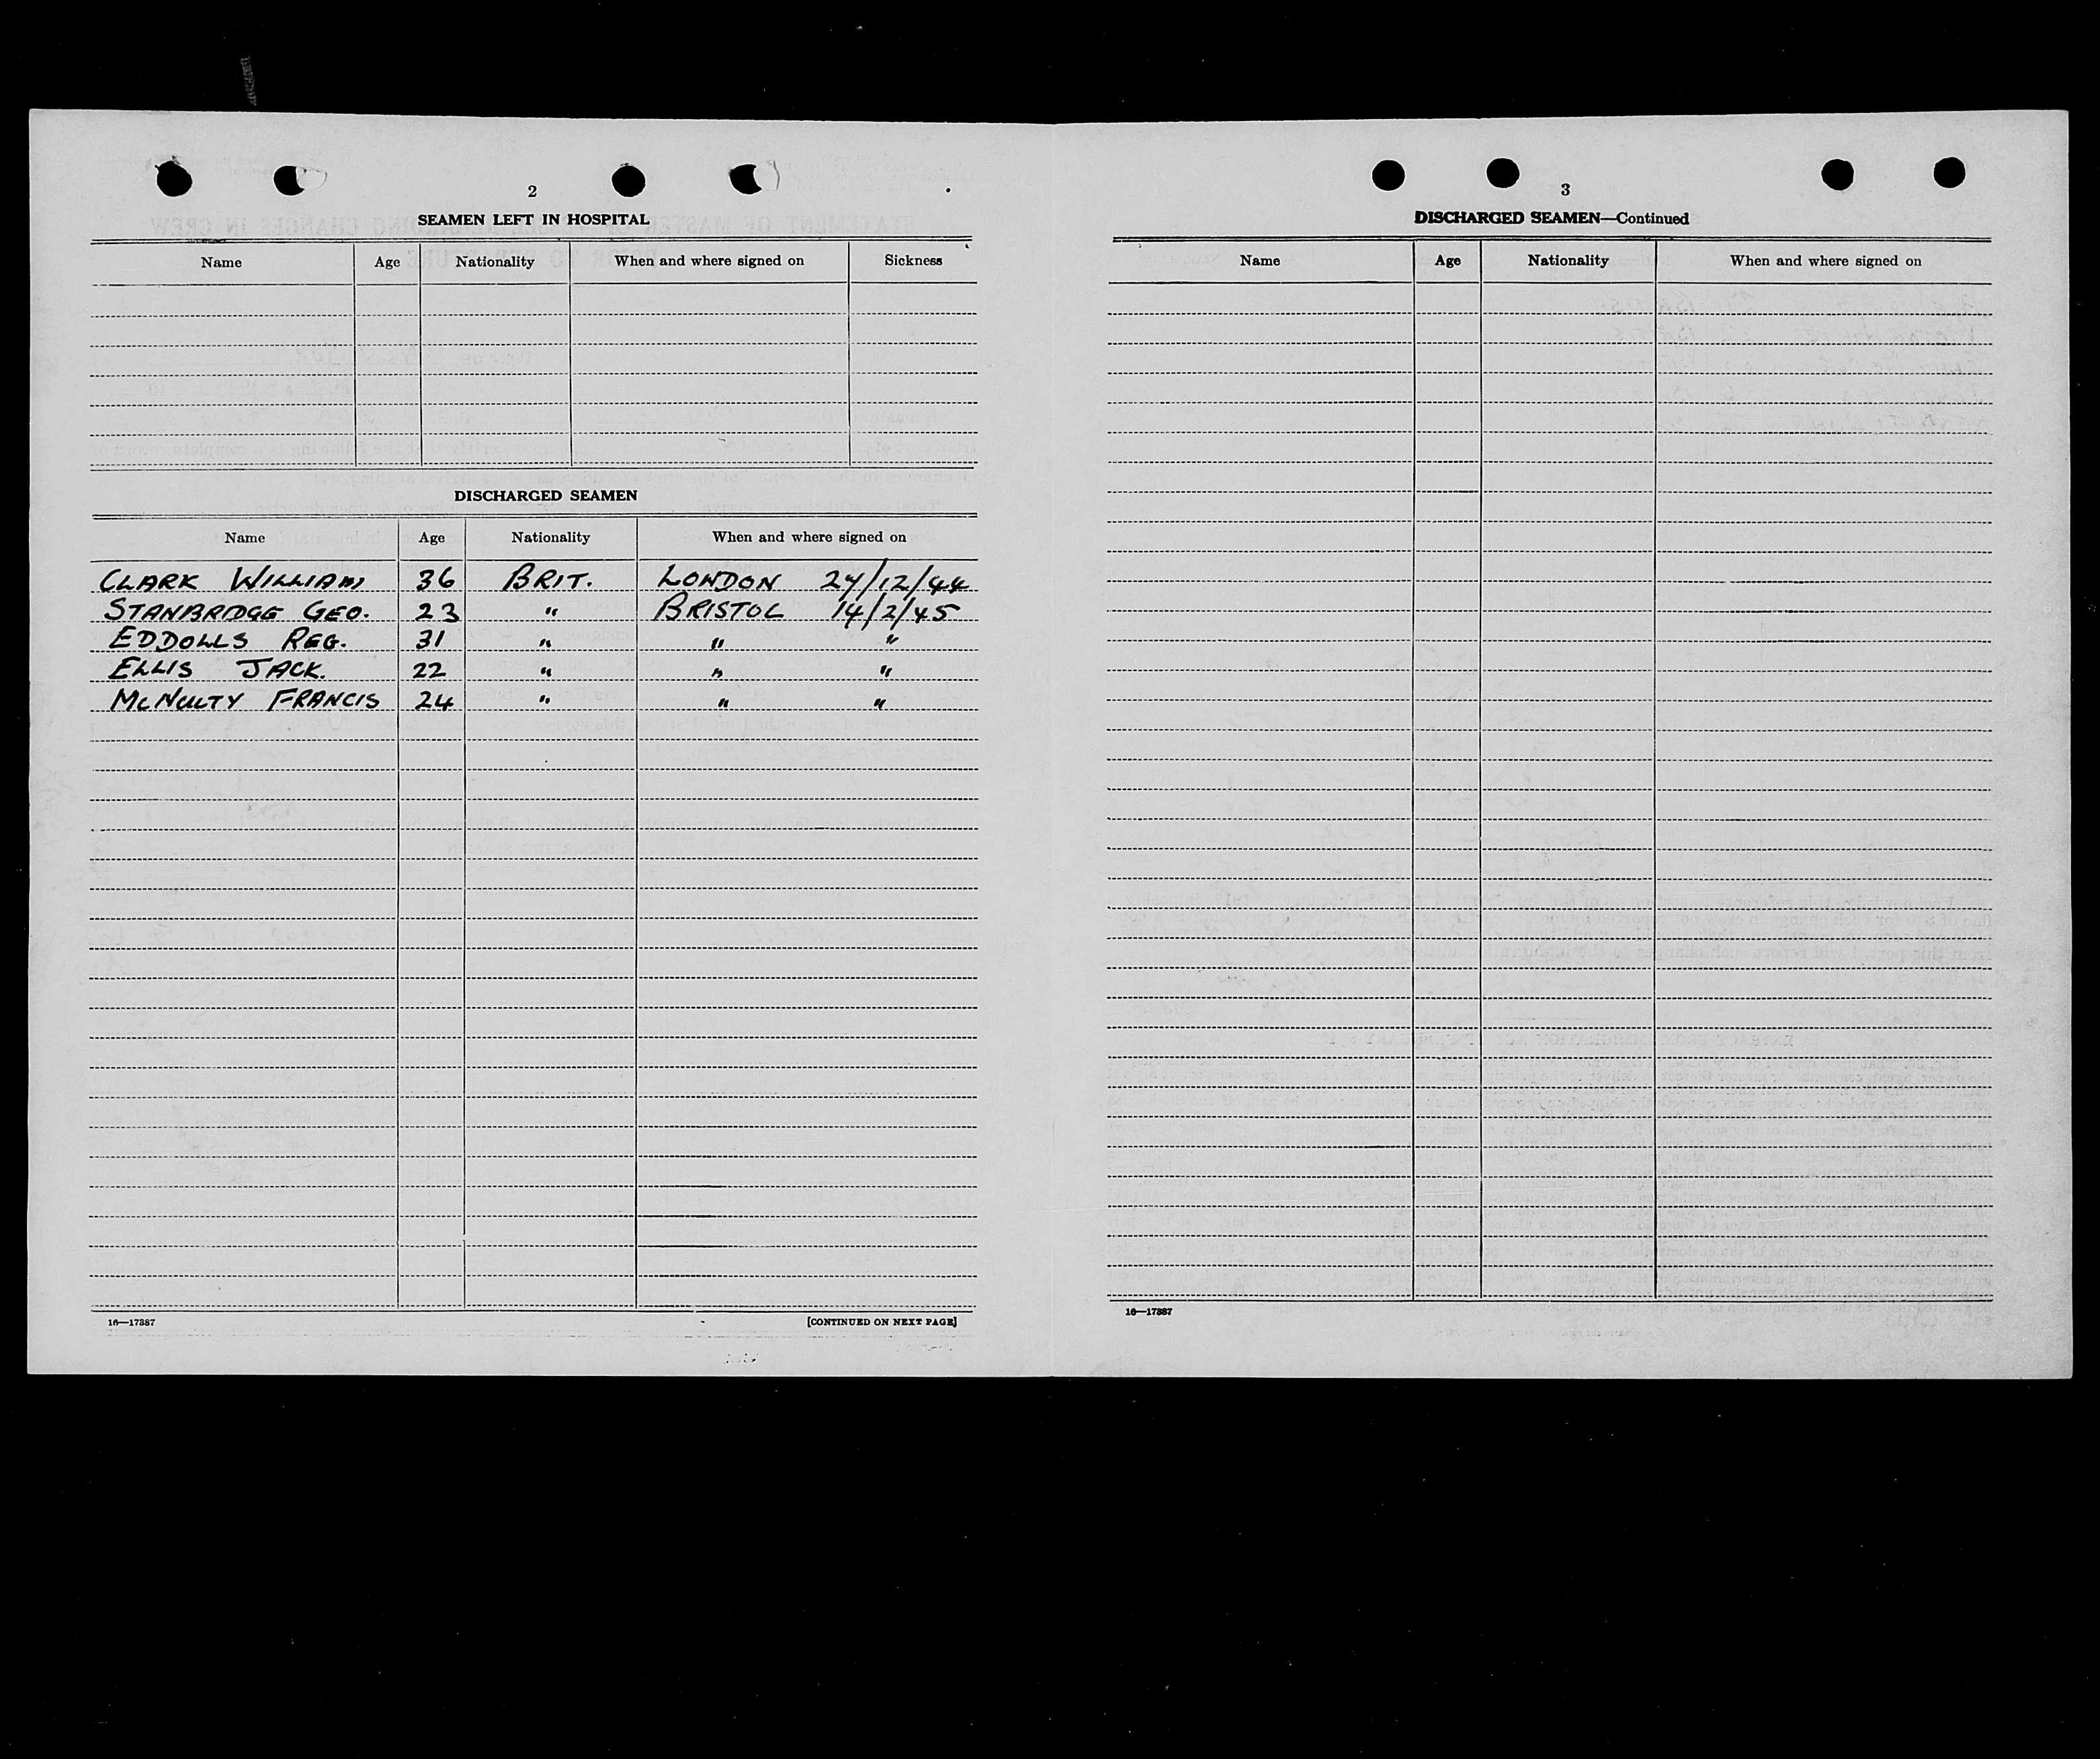 2
SEAMEN LEFT IN HOSPITAL
Name Age Nationality When and where signed on Sickness
DISCHARGED SEAMEN
Name Age Nationality When and where signed on
CLARK WILLIAM 36 BRIT. LONDON 27/12/44
STANBRIDGE GEO. 23 " BRISTOL 14/2/45
EDDOLLS REG. 31 " " "
ELLIS JACK. 22 " " "
MCNULTY FRANCIS 24 " " "
16—17387 [CONTINUED ON NEXT PAGE]
3
DISCHARGED SEAMEN—Continued
Name Age Nationality When and where signed on
16—17387